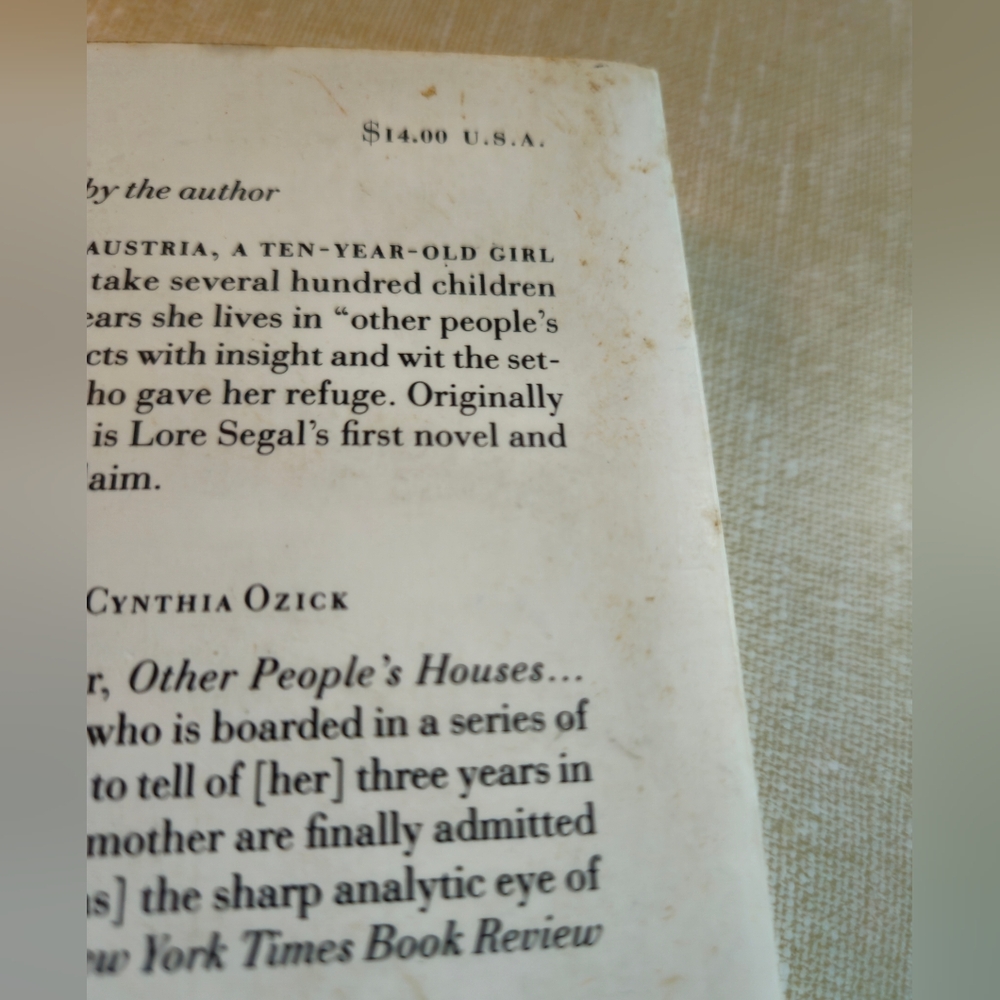 $14.00 U.S.A.
by the author
AUSTRIA, A TEN-YEAR-OLD GIRL
take several hundred children
ears she lives in “other people’s
cts with insight and wit the set-
ho gave her refuge. Originally
is Lore Segal’s first novel and
laim.
CYNTHIA OZICK
r, Other People’s Houses...
who is boarded in a series of
to tell of [her] three years in
mother are finally admitted
s] the sharp analytic eye of
ew York Times Book Review